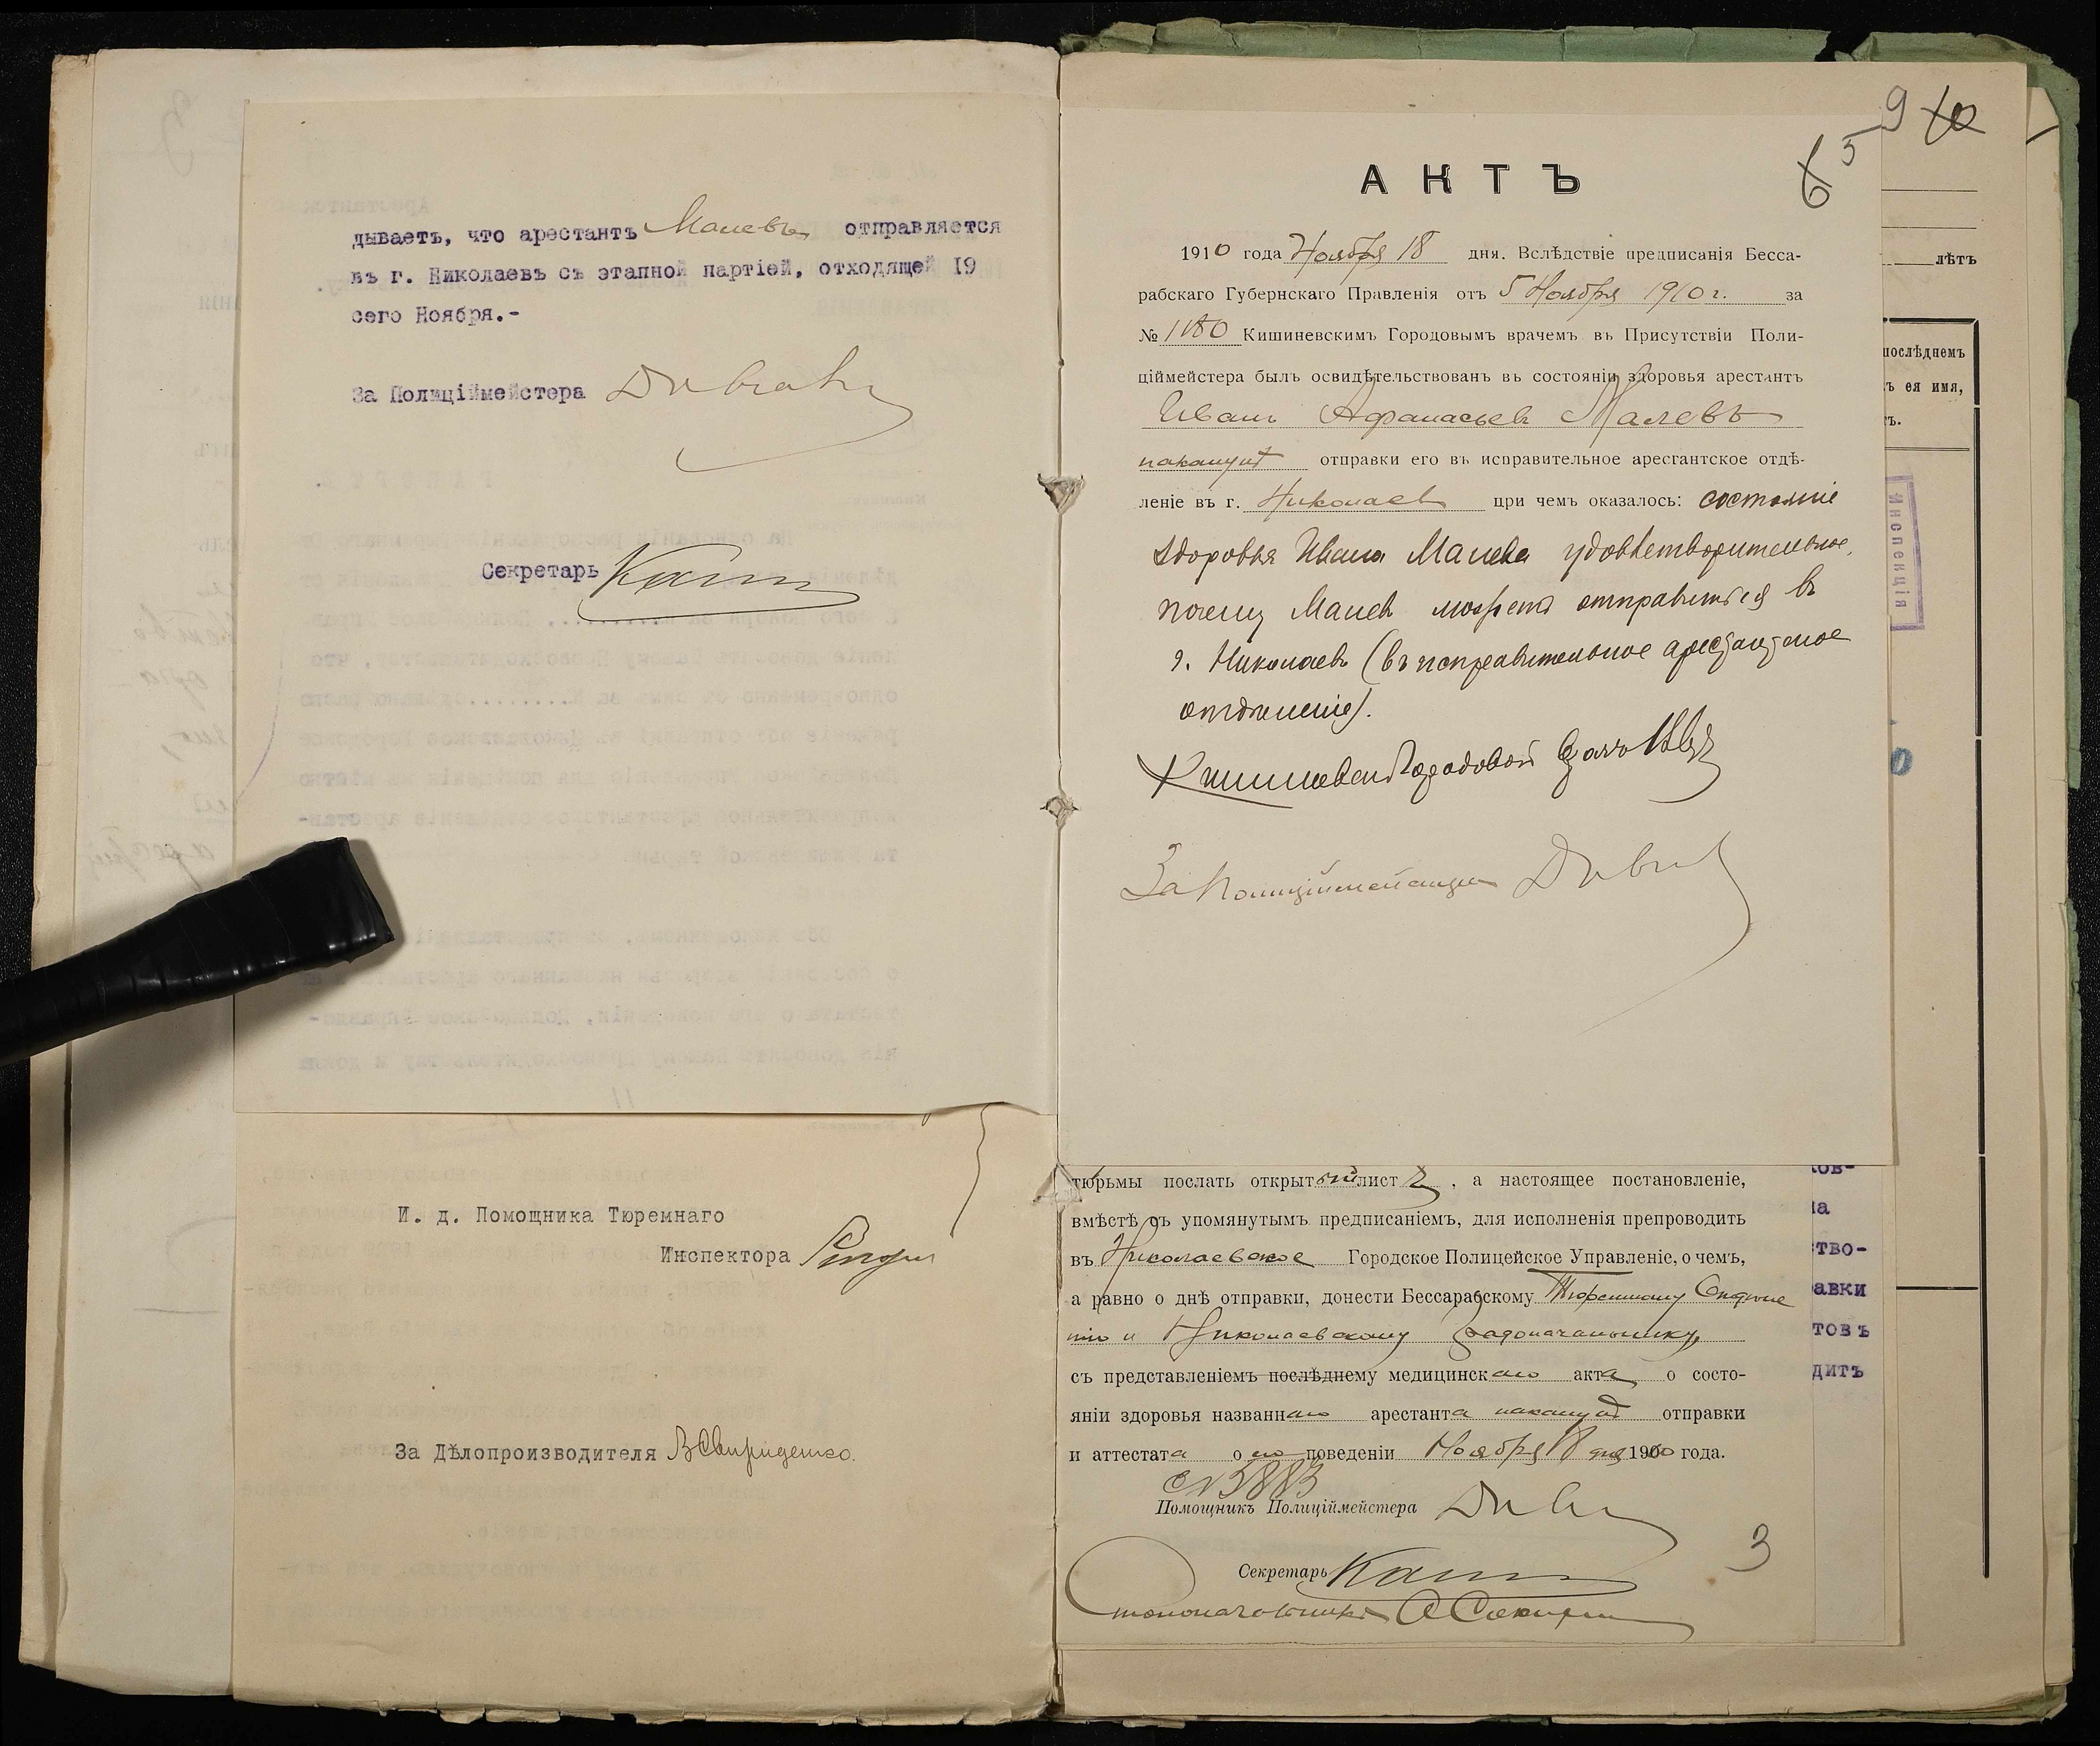 дываетъ, что арестантъ Малевъ отправляется
въ г. Николаевъ съ этапной партіей, отходящей 19
сего Ноября.-
За Полиціймейстера
Секретарь
И. д. Помощника Тюремнаго
Инспектора
За Дѣлопроизводителя ВСвириденко.
9 10
6 5
АКТЪ
1910 года Ноября 18 дня. Вслѣдствіе предписанія Бесса-
рабскаго Губернскаго Правленія отъ 5 Ноября 1910 г. за
№ 1180 Кишиневскимъ Городовымъ врачемъ въ Присутствіи Поли-
ціймейстера былъ освидѣтельствованъ въ состояніи здоровья арестантъ
Иванъ Афанасьевъ Малевъ
наканунѣ отправки его въ исправительное арестантское отдѣ-
леніе въ г. Николаевъ при чемъ оказалось: состояніе
здоровья Ивана Малева удовлетворительное,
почему Малев можетъ отправиться в
г. Николаевъ (въ исправительное арестантское
отдѣленіе).
Кишиневскій Городовой Врачъ
За Полиціймейстера
лѣтъ
послѣднемъ
ъ ея имя,
ть.
Инспекція
тюрьмы послать открытый лист , а настоящее постановленіе,
вмѣстѣ съ упомянутымъ предписаніемъ, для исполненія препроводить
въ Николаевское Городское Полицейское Управленіе, о чемъ,
а равно о днѣ отправки, донести Бессарабскому Тюремному Отдѣле
нію и Николаевскому Градоначальнику,
съ представленіемъ послѣднему медицинскаго акта о состо-
яніи здоровья названнаго арестанта наканунѣ отправки
и аттестата о его поведеніи Ноября 18 дня 1910 года.
№ 5883
Помощникъ Полиціймейстера
Секретарь
Столоначальникъ
3
ков-
на
ство-
авки
товъ
дитъ